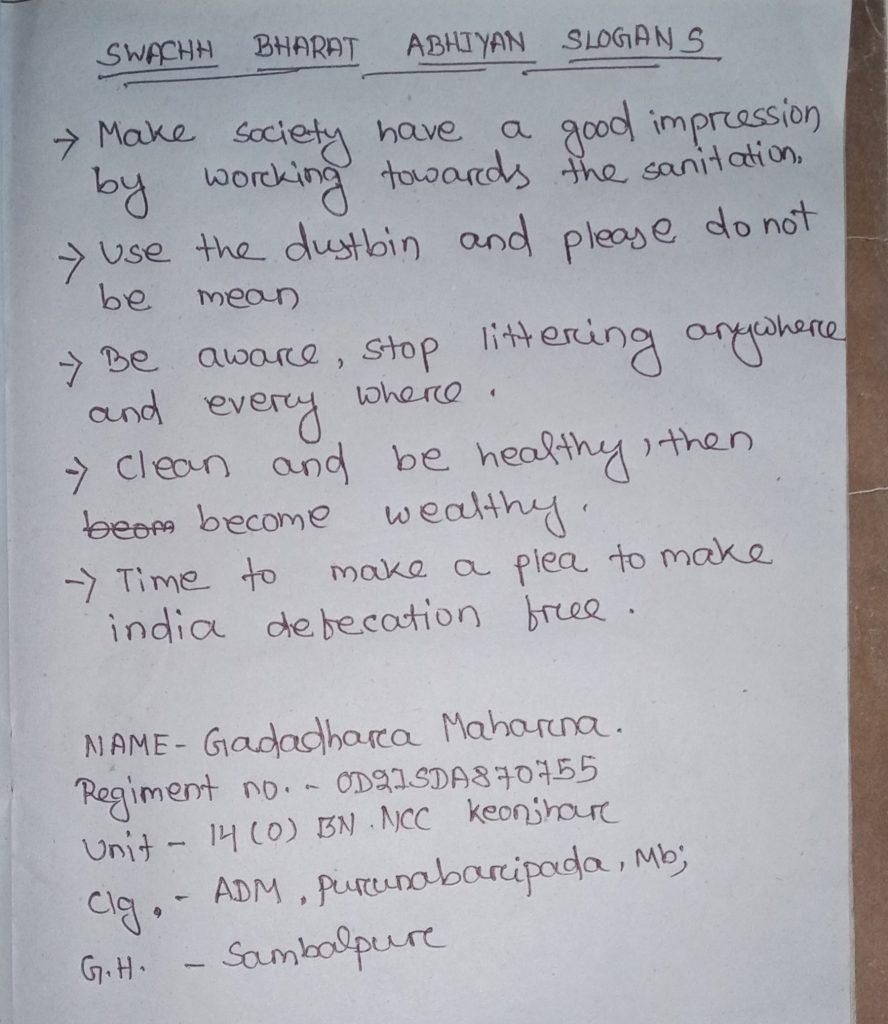 SWACHH BHARAT ABHIYAN SLOGANS
→ Make society have a good impression
by working towards the sanitation.
→ Use the dustbin and please do not
be mean
→ Be aware, stop littering anywhere
and every where.
→ Clean and be healthy, then
beom become wealthy.
→ Time to make a plea to make
india defecation free.
NAME - Gadadhara Maharana.
Regiment no. - OD21SDA870755
Unit - 14 (O) BN. NCC Keonjhar
Clg. - ADM, purunabaripada, Mbj
G.H. - Sambalpur